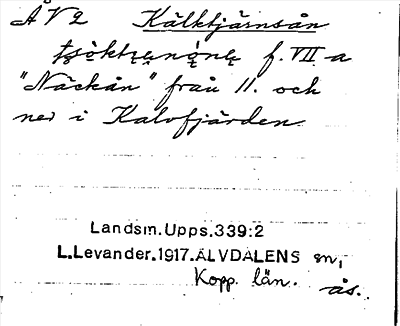 ÅV2 Kälktjärnsån
f. VII a
"Näckån" från 11. och
ned i Kalvfjärden.
Landsm.Upps.339:2
L.Levander.1917.ÄLVDALENS sn,
Kopp. län. ås.